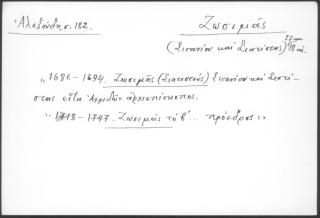 Ἀλεξούδη, σ. 182. Ζωσιμᾶς
(Σισανίου καὶ Σιατίστης) 17-18 αἰ.
„1686-1694. Ζωσιμᾶς (Σιατιστεὺς) Σισανίου καὶ Σιατί-
στης εἶτα Ἀχριδῶν ἀρχιεπίσκοπος.
„1718-1747. Ζωσιμᾶς τὸ β΄ .. πρόεδρος»